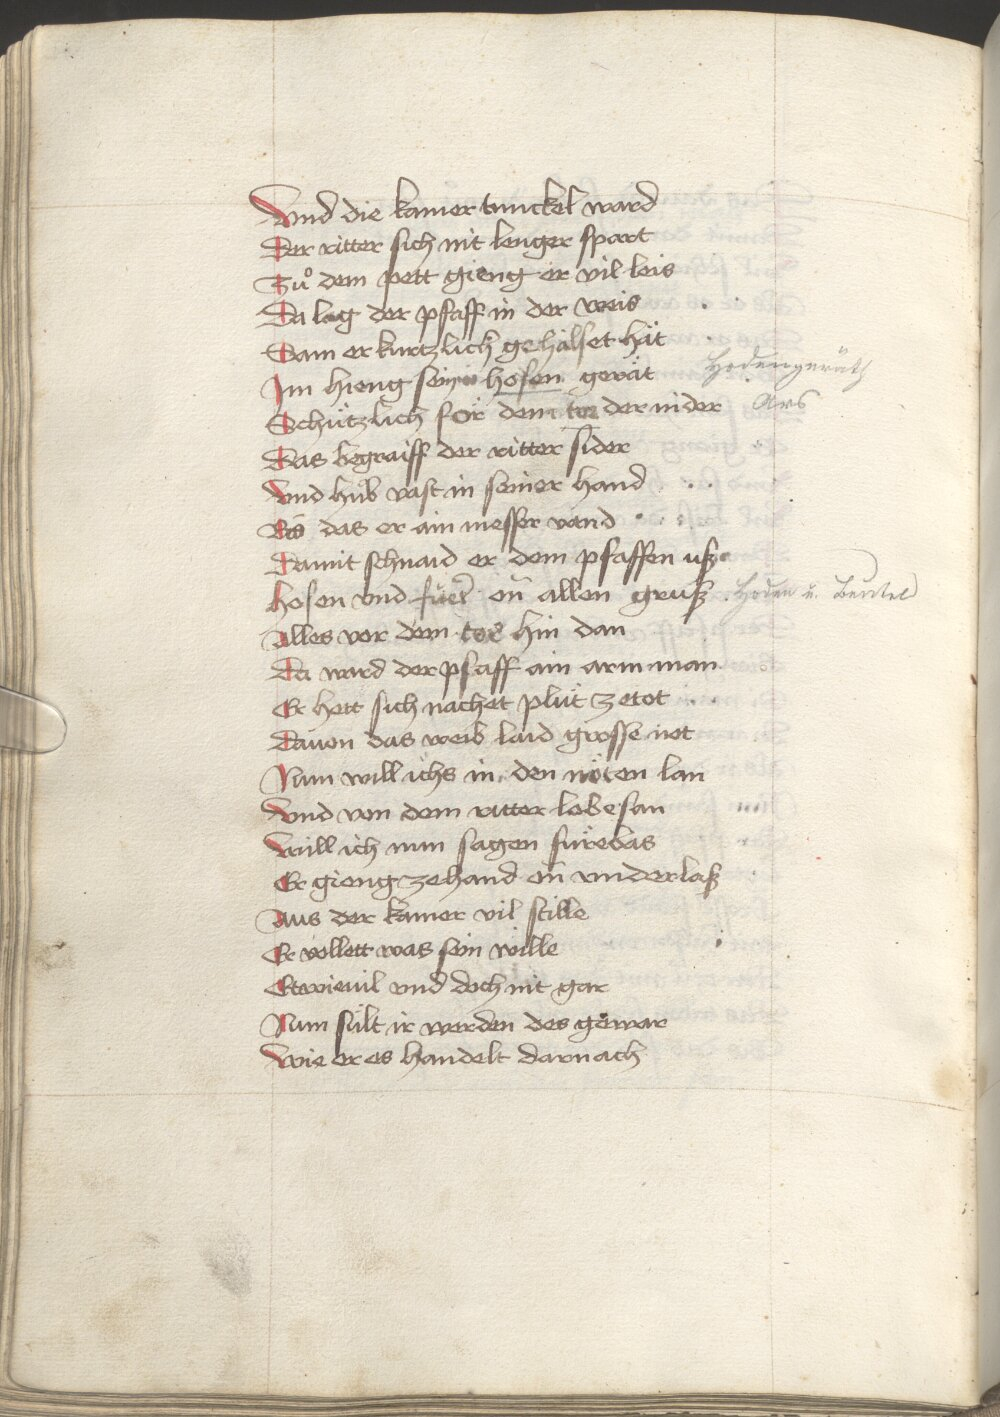 Vnd die kamer tunckel ward
Der ritter sich nit lenger spart
Zuͦ dem pett gieng er vil leis
Da lag der pfaff in der weis
Dam er kurtzlich gehalset hät
Im hieng sein hosen gerät Hodengeräth
Schützlich för dem tor der nider Ars
Das begraiff der ritter sider
Vnd hůb vast in seiner hand
Bis das er ain messer vand
Damit schnaid er dem pfaffen uß
hosen vnd on allen gruß Hoden u. Beutel
Alles vor dem tor hin dan
Da ward der pfaff ain arm man
Er hett sich nachet plůt ze tot
Dauon das weib laid grosse not
Num will ichs in den nöten lan
Vnd von dem ritter lobesan
Will ich nun sagen fürebas
Er gieng zehand on vnderlaß
Aus der kamer vil stille
Er vollett was sein wille
Etwieuil vnd doch nit gar
Num sült ir werden des gewar
Wie er es handelt darnach